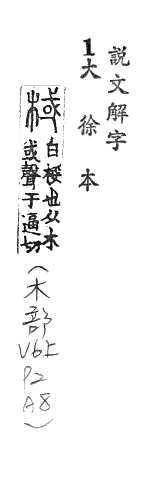 說文解字
1大徐本
棫 白桵也从木
或聲于逼切
(木部V6上P2A8)